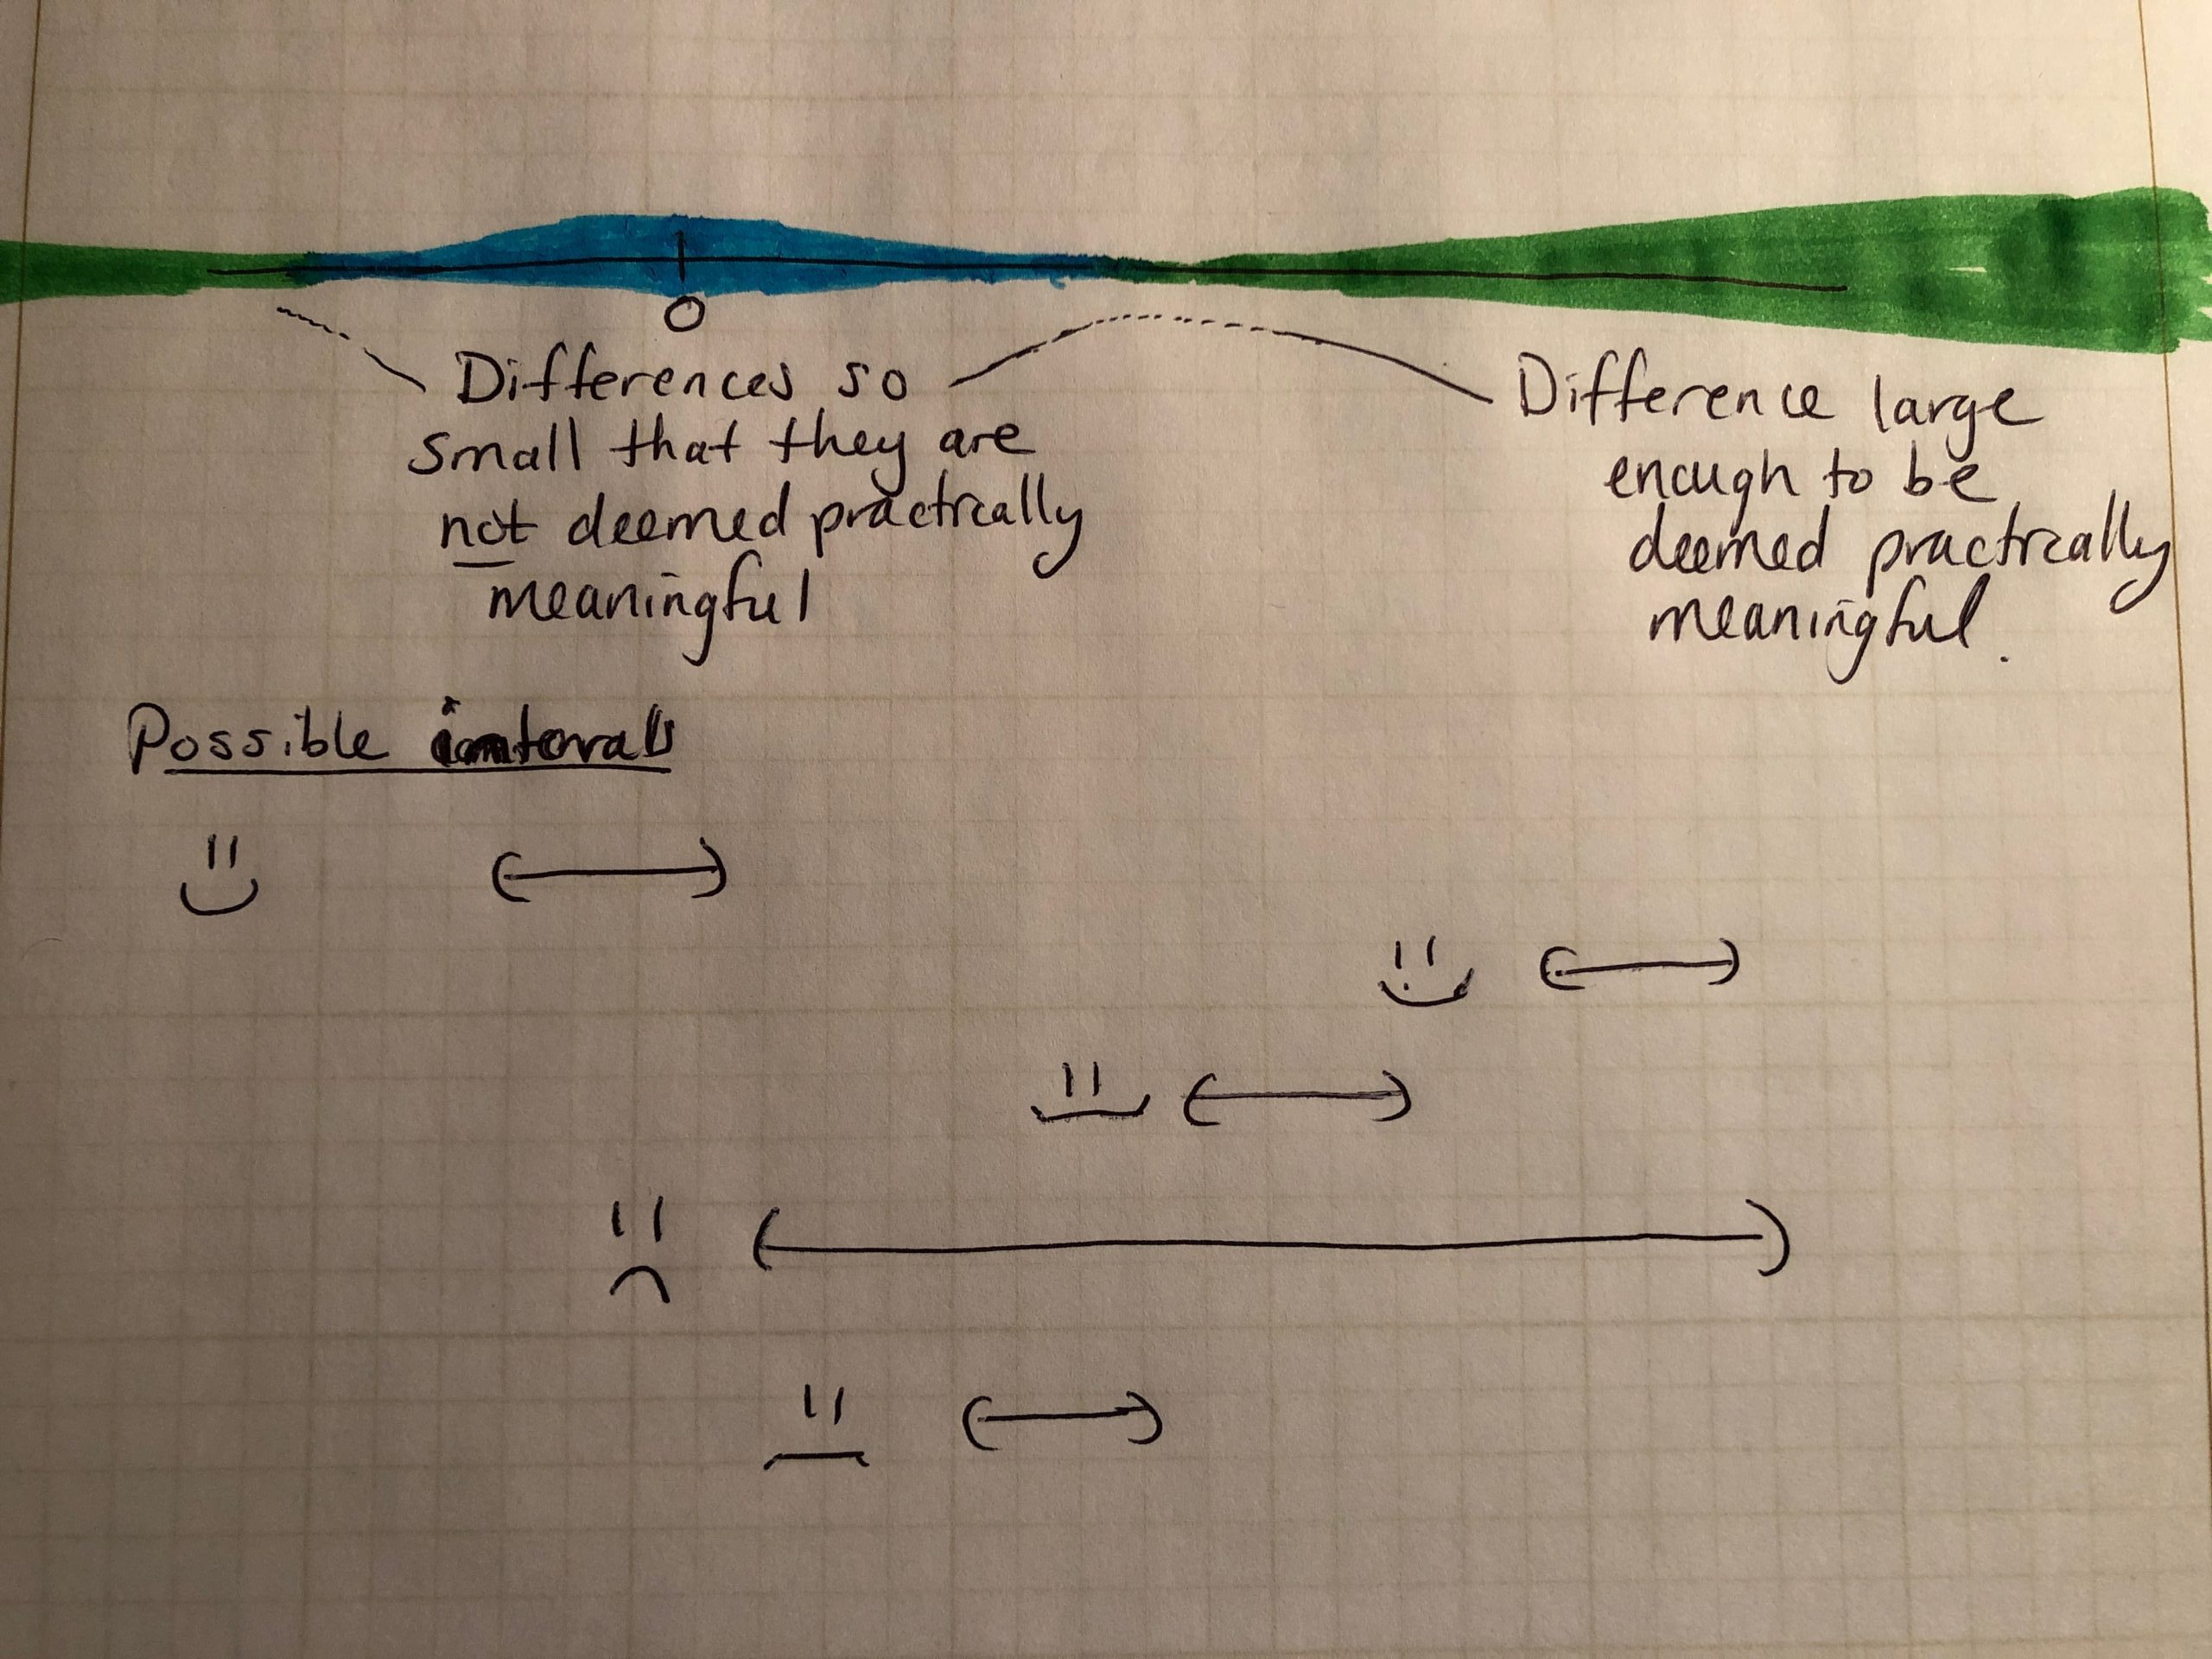 0
Differences so
small that they are
not deemed practically
meaningful
Difference large
enough to be
deemed practically
meaningful.
Possible intervals